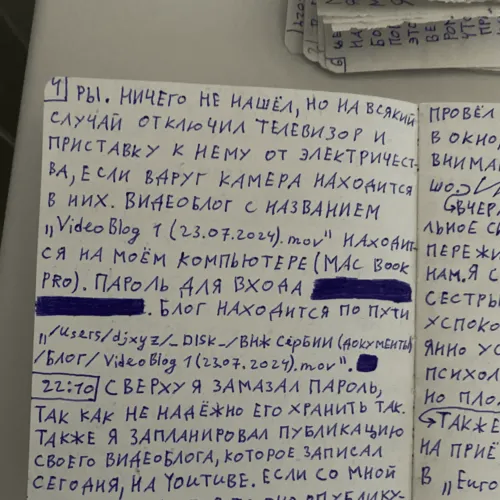 4
РЫ. НИЧЕГО НЕ НАШЁЛ, НО НА ВСЯКИЙ
СЛУЧАЙ ОТКЛЮЧИЛ ТЕЛЕВИЗОР И
ПРИСТАВКУ К НЕМУ ОТ ЭЛЕКТРИЧЕСТ-
ВА, ЕСЛИ ВДРУГ КАМЕРА НАХОДИТСЯ
В НИХ. ВИДЕОБЛОГ С НАЗВАНИЕМ
„Video Blog 1 (23.07.2024).mov" НАХОДИТ-
СЯ НА МОЁМ КОМПЬЮТЕРЕ (MAC Book
PRO). ПАРОЛЬ ДЛЯ ВХОДА
. БЛОГ НАХОДИТСЯ ПО ПУТИ
„/Users/djxyz/_DISK_/ВНЖ СЕРБИИ (ДОКУМЕНТЫ)
/БЛОГ/Video Blog 1 (23.07.2024).mov".
22:10 СВЕРХУ Я ЗАМАЗАЛ ПАРОЛЬ,
ТАК КАК НЕ НАДЁЖНО ЕГО ХРАНИТЬ ТАК.
ТАКЖЕ Я ЗАПЛАНИРОВАЛ ПУБЛИКАЦИЮ
СВОЕГО ВИДЕОБЛОГА, КОТОРОЕ ЗАПИСАЛ
СЕГОДНЯ, НА YOUTUBE. ЕСЛИ СО МНОЙ
ПРОВЁЛ
В ОКНО,
ВНИМА
ШО.
ВЧЕР
ЛЬНОЕ
ПЕРЕЖИ
НАМ. Я С
СЕСТРЫ
УСПОКО
ЯННО УС
ПСИХОЛ
НО ПЛО
ТАКЖЕ
НА ПРИЁ
В „Euro